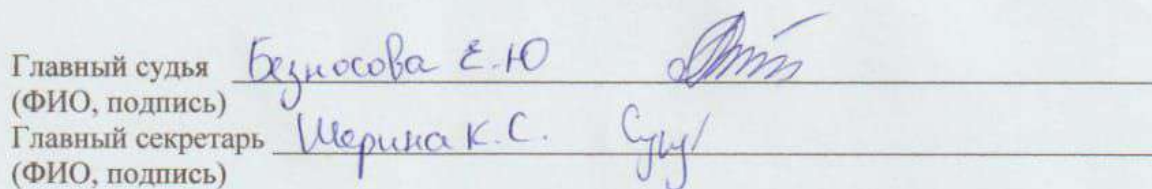 Главный судья Безносова Е.Ю
(ФИО, подпись)
Главный секретарь Шерина К.С.
(ФИО, подпись)